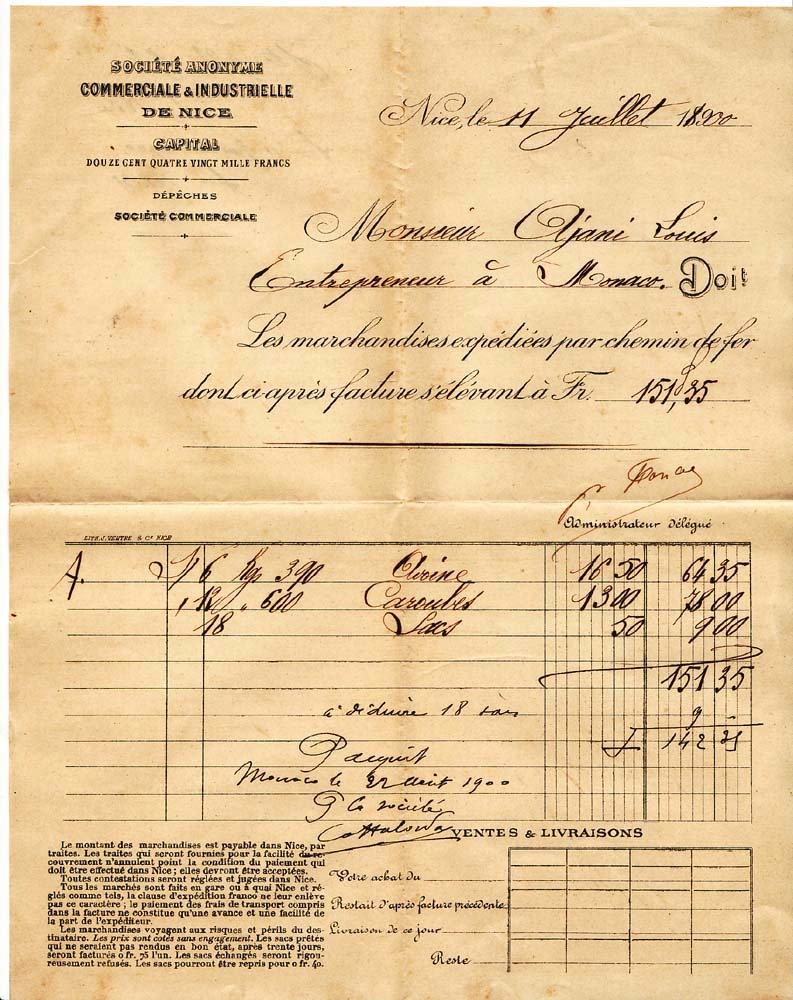 SOCIÉTÉ ANONYME
COMMERCIALE & INDUSTRIELLE
DE NICE
CAPITAL
DOUZE CENT QUATRE VINGT MILLE FRANCS
DÉPÊCHES
SOCIÉTÉ COMMERCIALE
Nice, le 11 Juillet 1900
Monsieur Ajani Louis
Entrepreneur à Monaco. Doit
Les marchandises expédiées par chemin de fer
dont ci-après facture s'élévant à Fr. 151,35
Administrateur délégué
LITH. J. VENTRE & Cie NICE
A. 6 Kgs 390 Avoine 16 50 64 35
12 " 600 Caroubes 13 00 78 00
18 Sacs 50 9 00
151 35
à déduire 18 sacs 9 -
142 35
P acquit
Monaco le 22 Août 1900
P la société
VENTES & LIVRAISONS
Le montant des marchandises est payable dans Nice, par
traites. Les traites qui seront fournies pour la facilité du re-
couvrement n'annulent point la condition du paiement qui
doit être effectué dans Nice; elles devront être acceptées.
Toutes contestations seront réglées et jugées dans Nice.
Tous les marchés sont faits en gare ou à quai Nice et ré-
glés comme tels, la clause d'expédition franco ne leur enlève
pas ce caractère; le paiement des frais de transport compris
dans la facture ne constitue qu'une avance et une facilité de
la part de l'expéditeur.
Les marchandises voyagent aux risques et périls du des-
tinataire. Les prix sont cotés sans engagement. Les sacs prêtés
qui ne seraient pas rendus en bon état, après trente jours,
seront facturés 0 fr. 75 l'un. Les sacs échangés seront rigou-
reusement refusés. Les sacs pourront être repris pour 0 fr. 40.
Votre achat du
Restait d'après facture précédente
Livraison de ce jour
Reste